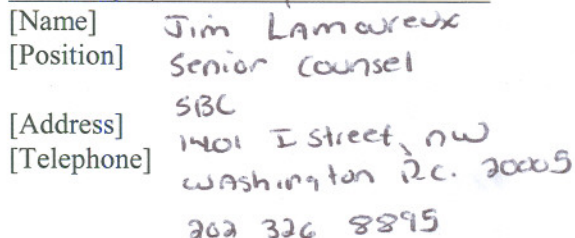 [Name] Jim Lamoureux
[Position] Senior Counsel
SBC
[Address] 1401 I Street, NW
[Telephone] Washington D.C. 20005
202 326 8895